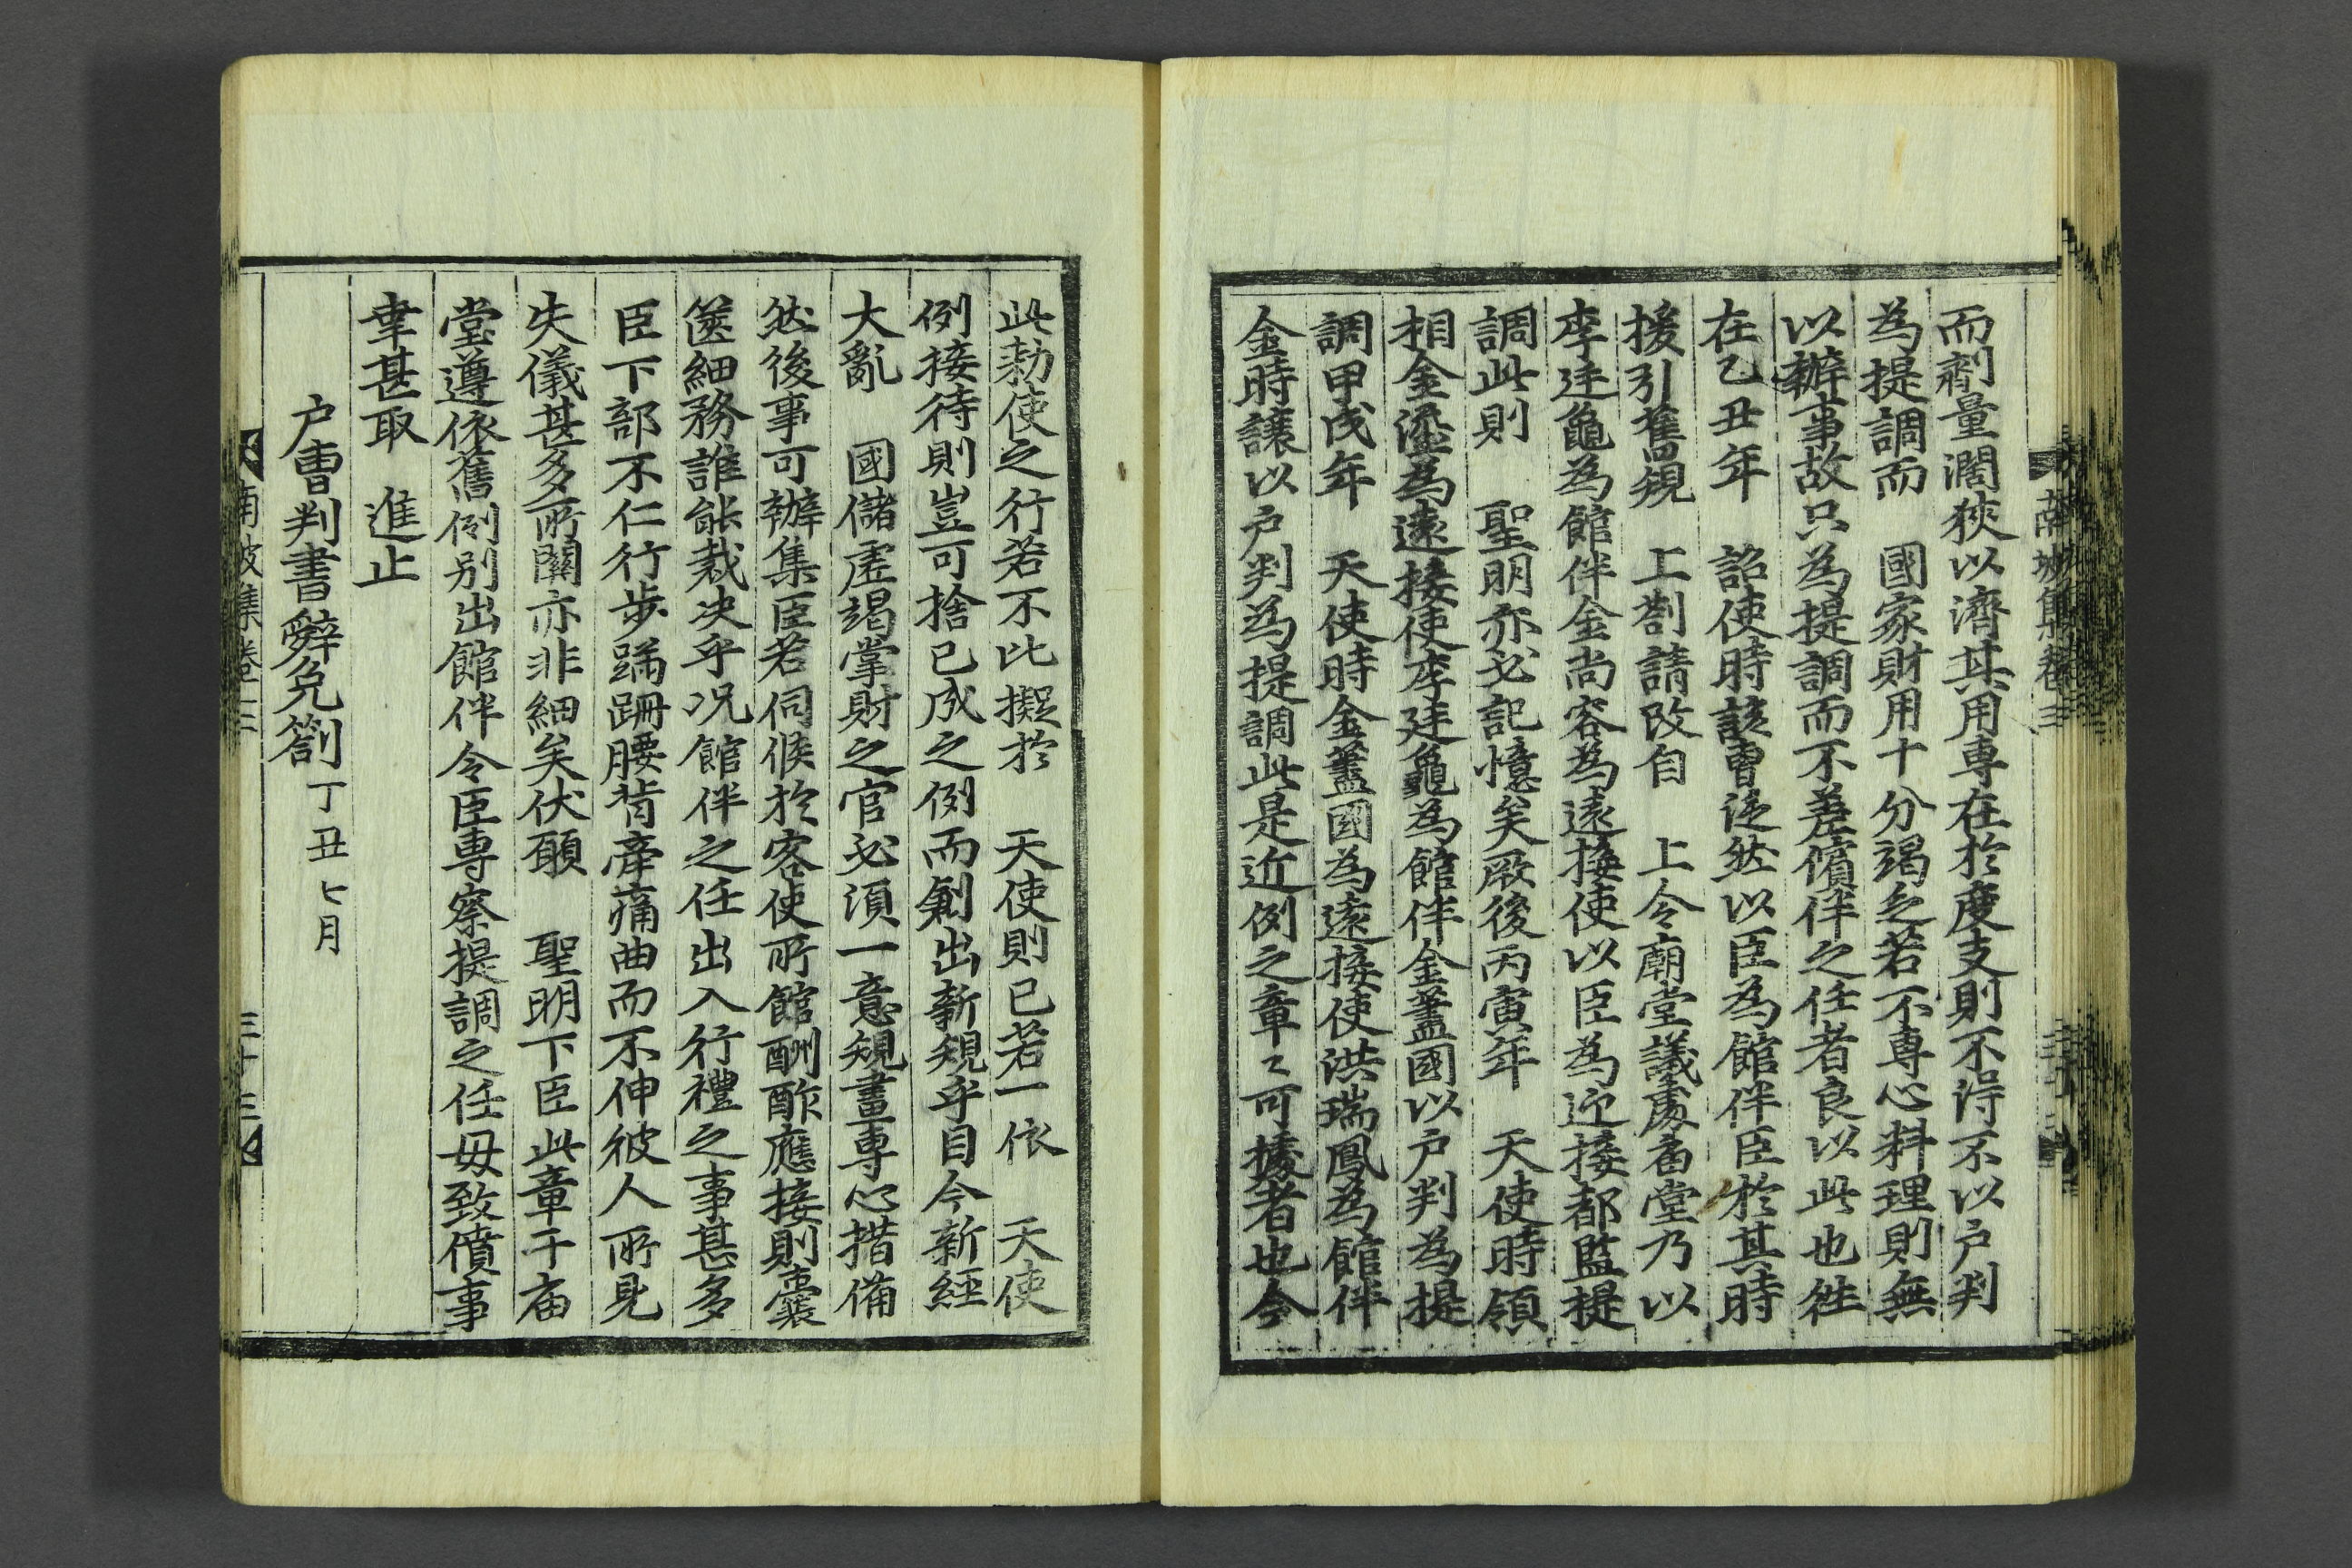 而劑量濶狹以濟其用專在於度支則不淂不以户判
為提調而　國家財用十分竭乏若不專心料理則無
以辦事故只為提調而不差儐伴之任者良以此也徃
在乙丑年　詔使時該曹徒然以臣為館伴臣於其時
援引舊規　上劄請改自　上令廟堂議處畣堂乃以
李廷龜為館伴金尚容為遠接使以臣為迎接都監提
調此則　聖明亦必記憶矣厥後丙寅年　天使時領
相金瑬為遠接使李廷龜為館伴金藎國以户判為提
調甲戌年　天使時金藎國為遠接使洪瑞鳳為館伴
金時讓以户判為提調此是近例之章〻可據者也今
此勑使之行若不比擬於　天使則已若一依　天使
例接待則豈可捨已成之例而剏出新規乎目今新經
大亂　國儲虛竭掌財之官必湏一意規畫專心措備
然後事可辦集臣若伺候於客使所館酬酢應接則囊
篋細務誰能裁决乎况館伴之任出入行禮之事甚多
臣下部不仁行步蹣跚腰背牽痛曲而不伸彼人所見
失儀甚多所關亦非細矣伏願　聖明下臣此章于庙
堂遵依舊例别出館伴令臣專察提調之任毋致僨事
幸甚取　進止
户曹判書辭免劄 丁丑七月
南坡集卷三　三十三